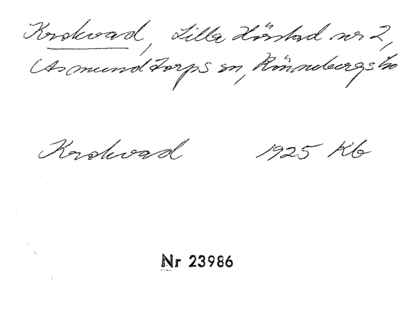 Krokvad, Lilla Harstad nr 2,
Asmundtorps sn, Rönnebergs hd
Krokvad 1925 Kb
Nr 23986